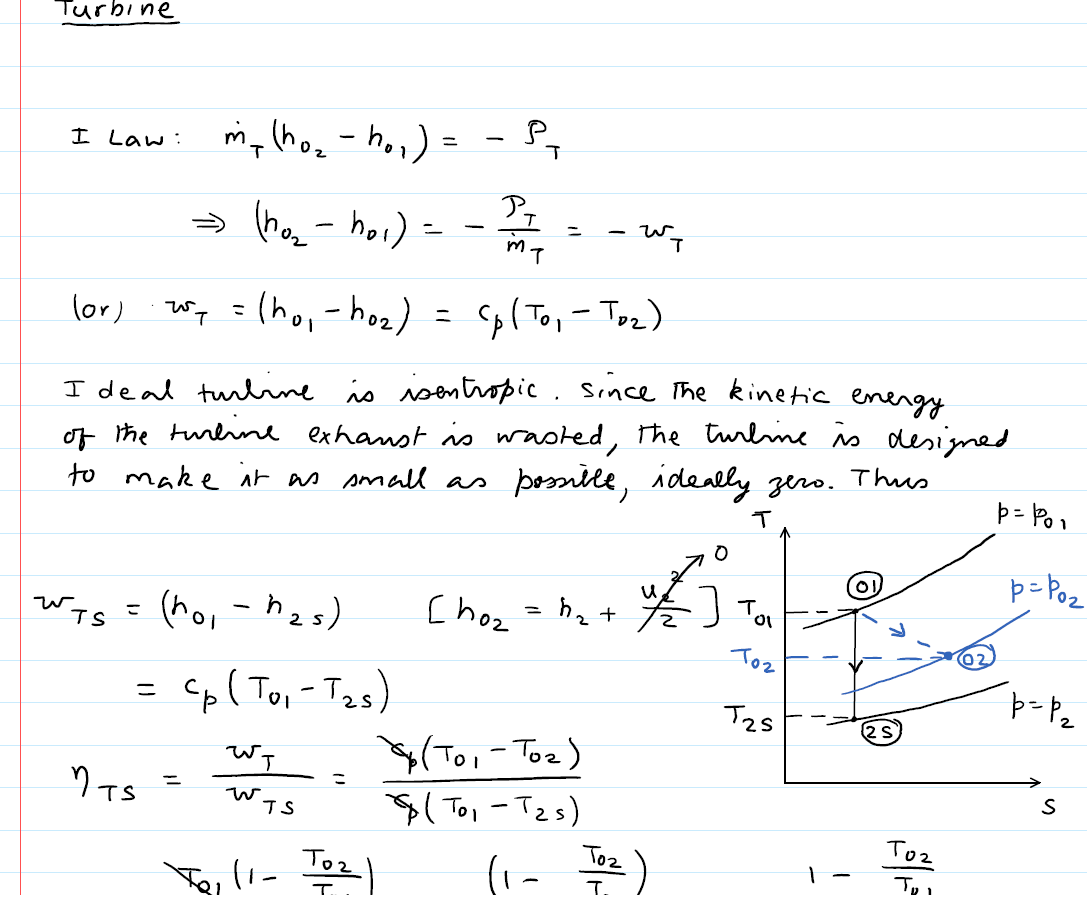 Turbine
I Law: ṁ_T (h_02 − h_01) = − P_T
⇒ (h_02 − h_01) = − P_T / ṁ_T = − w_T
(or) w_T = (h_01 − h_02) = c_p (T_01 − T_02)
Ideal turbine is isentropic. Since the kinetic energy
of the turbine exhaust is wasted, the turbine is designed
to make it as small as possible, ideally zero. Thus
w_TS = (h_01 − h_2s) [h_02 = h_2 + u_2^2 / 2 ] → 0
= c_p (T_01 − T_2s)
η_TS = w_T / w_TS = c_p (T_01 − T_02) / c_p (T_01 − T_2s)
T_01 (1 − T_02 / (1 − T_02 / 1 − T_02 / T_01
T
p = p_01
01
p = p_02
T_01
T_02
02
T_2s
2s
p = p_2
s